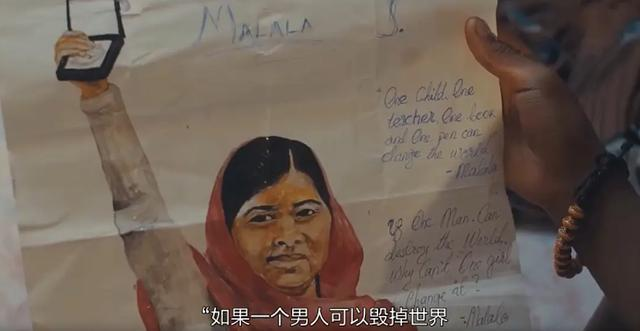 MALALA S.
"One Child, One
teacher, One book
and One pen can
change the world
-Malala
If One Man Can
destroy the World,
Why Can't One girl
Change it?
-Malala
“如果一个男人可以毁掉世界